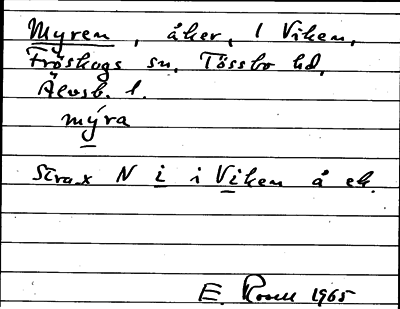 Myren, åker, 1 Viken,
Fröskogs sn, Tössbo hd,
Älvsb. l.
mýra
Strax N i i Viken å ek.
E. 1965